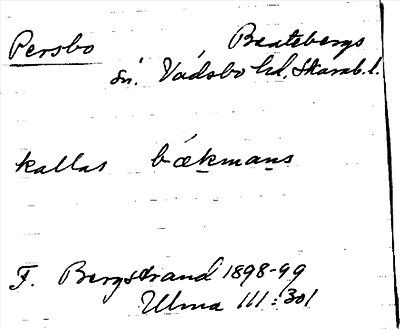 Persbo Beatebergs
sn. Vadsbo hd, Skarab. l.
kallas bækmans
F. Bergstrand 1898-99
Ulma 111:301